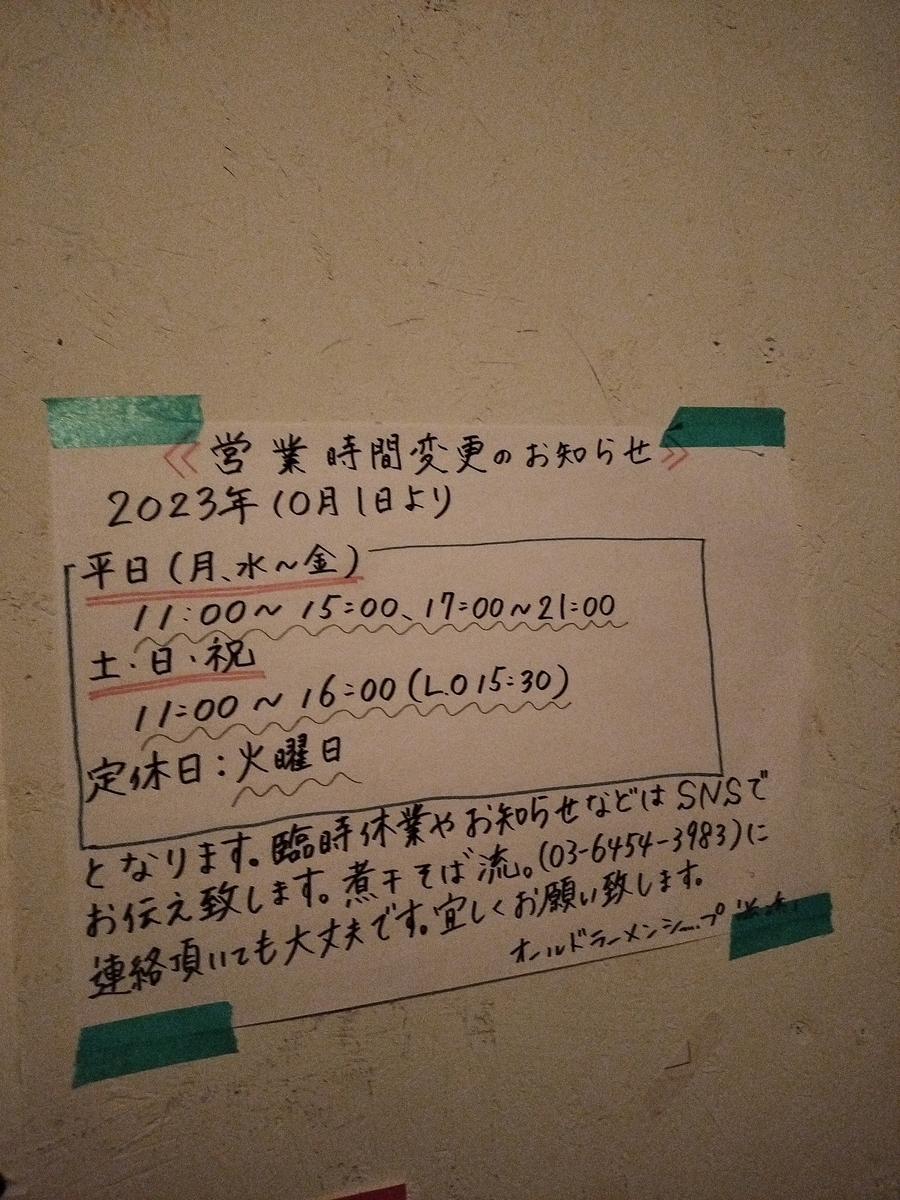 《営業時間変更のお知らせ》
2023年10月1日より
平日(月、水~金)
11:00~15:00、17:00~21:00
土・日・祝
11:00~16:00(L.O 15:30)
定休日:火曜日
となります。臨時休業やお知らせなどはSNSで
お伝え致します。煮干そば流。(03-6454-3983)に
連絡頂いても大丈夫です。宜しくお願い致します。
オールドラーメンショップ